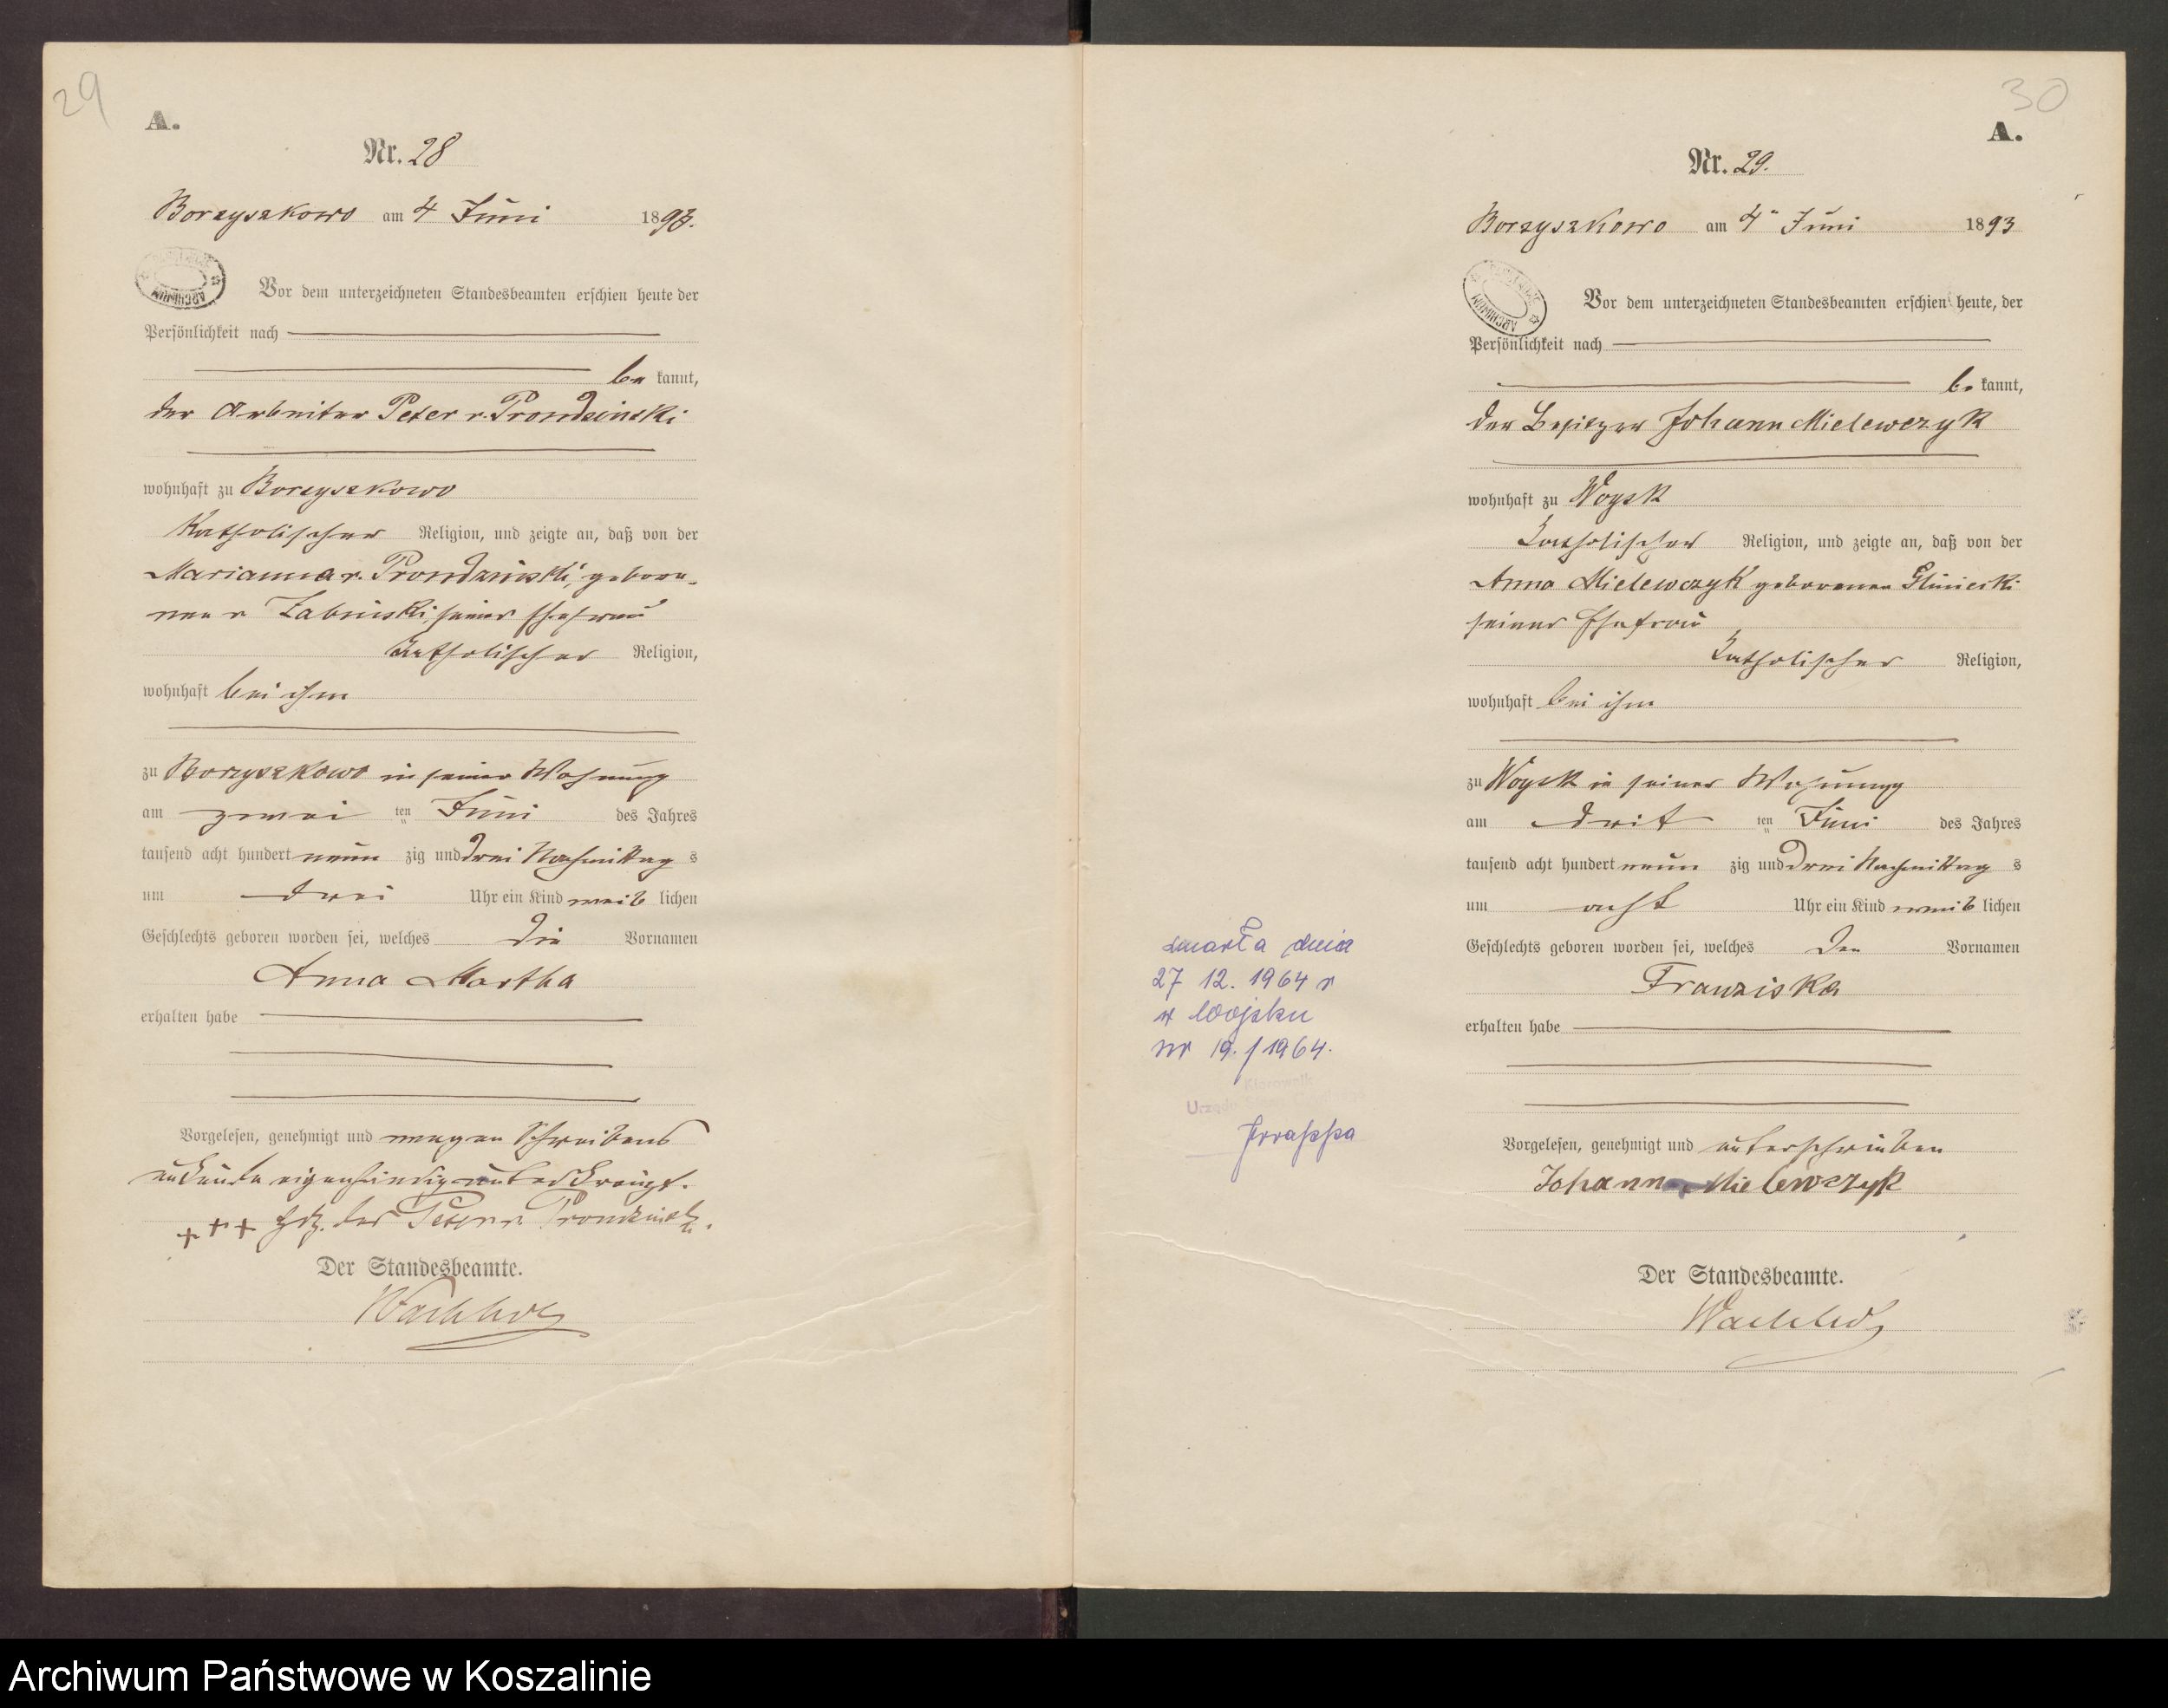 29
A.
Nr. 28
Borzyszkowo am 4 Juni 1893.
Vor dem unterzeichneten Standesbeamten erschien heute der
Persönlichkeit nach
be kannt,
der Arbeiter Peter v. Prondzinski
wohnhaft zu Borzyszkowo
katholischer Religion, und zeigte an, daß von der
Marianna v. Prondzinski, gebore-
nen v Zabinski, seiner Ehefrau
katholischer Religion,
wohnhaft bei ihm
zu Borzyszkowo in seiner Wohnung
am zwei ten Juni des Jahres
tausend acht hundert neun zig und drei Nachmittag s
um drei Uhr ein Kind weib lichen
Geschlechts geboren worden sei, welches die Vornamen
Anna Martha
erhalten habe
Vorgelesen, genehmigt und wegen Schreibens
unkunde eigenhändig unterkreuzt.
+++ Hdz. des Peter v. Prondzinski.
Der Standesbeamte.
Wachholz
30
A.
Nr. 29.
Borzyszkowo am 4ⁿ Juni 1893
ARCHIWUM
Vor dem unterzeichneten Standesbeamten erschien heute, der
Persönlichkeit nach
be kannt,
der Besitzer Johann Mielewczyk
wohnhaft zu Woysk
katholischer Religion, und zeigte an, daß von der
Anna Mielewczyk geborenen Glinieski
seiner Ehefrau
katholischer Religion,
wohnhaft bei ihm
zu Woysk in seiner Wohnung
am drit ten Juni des Jahres
tausend acht hundert neun zig und drei Nachmittag s
um acht Uhr ein Kind weib lichen
Geschlechts geboren worden sei, welches den Vornamen
Franziska
erhalten habe
Vorgelesen, genehmigt und unterschrieben
Johann Mielewczyk
Der Standesbeamte.
Wachholz
zmarła dnia
27 12. 1964 r
w Wojsku
nr 19./1964.
Kierownik
Archiwum Państwowe w Koszalinie